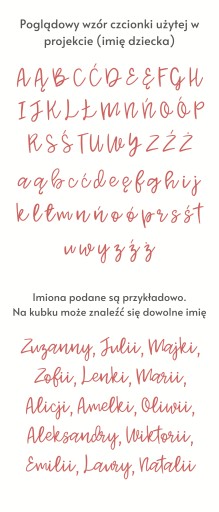 Poglądowy wzór czcionki użytej w
projekcie (imię dziecka)
A Ą B C Ć D E Ę F G H
I J K L Ł M N Ń O Ó P
R S Ś T U W Y Z Ź Ż
a ą b c ć d e ę f g h i j
k l ł m n ń o ó p r s ś t
u w y z ź ż
Imiona podane są przykładowo.
Na kubku może znaleźć się dowolne imię
Zuzanny, Julii, Majki,
Zofii, Lenki, Marii,
Alicji, Amelki, Oliwii,
Aleksandry, Wiktorii,
Emilii, Laury, Natalii